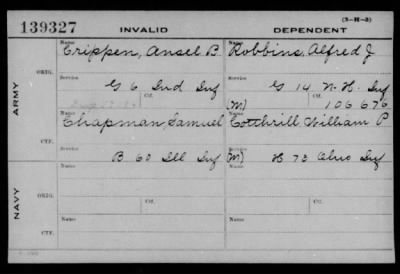 (3-H-3)
139327 INVALID DEPENDENT
ARMY
ORIG.
Name Crippen, Ansel B. Name Robbins, Alfred J
Service G 6 Ind Inf Service G 14 N.H. Inf
Ctf. Ctf.
(M) 106676
CTF.
Name Chapman, Samuel Name Cotthrill William P
Service B 60 Ill Inf Service (M) H 73 Ohio Inf
NAVY
ORIG.
Name Name
Service Ctf. Service Ctf.
CTF.
Name Name
Service Service